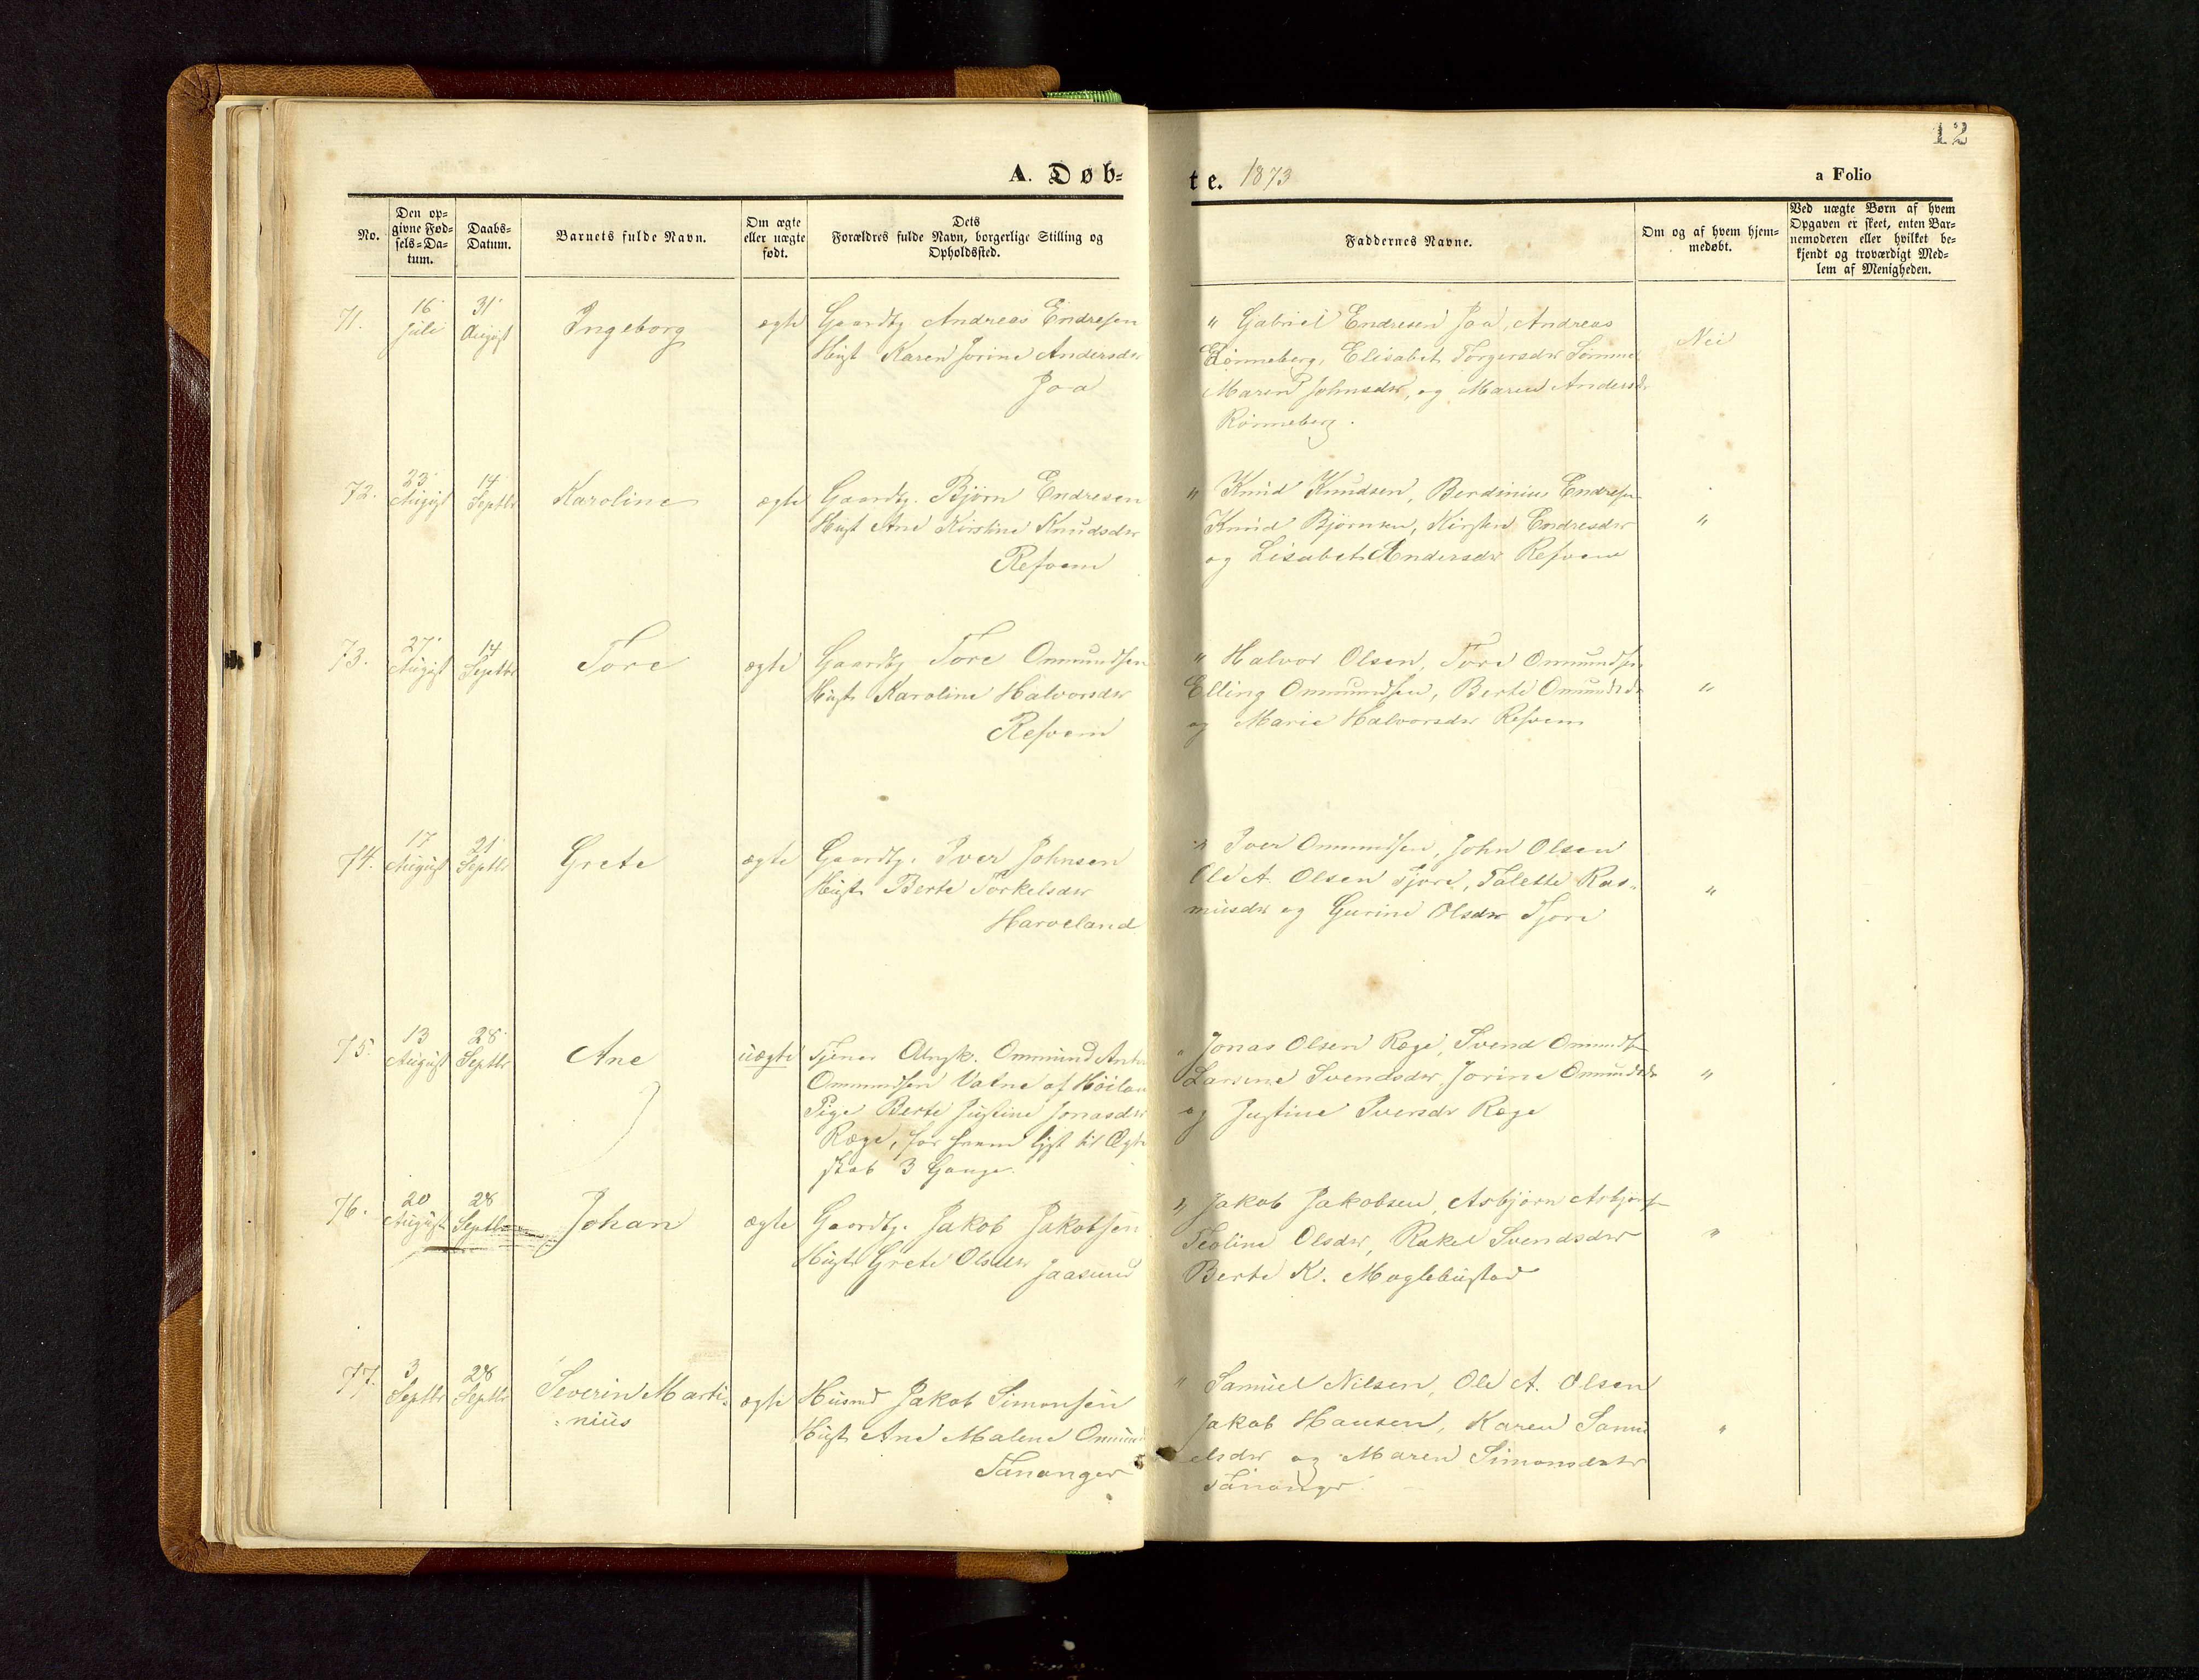 12
A. Døb-
te. 1873
a Folio
No.
Den op-
givne Fød-
sels-Da-
tum.
Daabs-
Datum.
Barnets fulde Navn.
Om ægte
eller uægte
født.
Dets
Forældres fulde Navn, borgerlige Stilling og
Opholdssted.
Faddernes Navne.
Om og af hvem hjem-
medøbt.
Ved uægte Børn af hvem
Opgaven er skeet, enten Bar-
nemoderen eller hvilket be-
kjendt og troværdigt Med-
lem af Menigheden.
71.
16
Juli
31
August
Ingeborg
ægte
Gaardbr. Andreas Endresen
Hust Karen Jorine Andersdr
Joa
" Gabriel Endresen Joa, Andreas
Rönneberg, Elisabet Torgersdr Sömme
Maren Johnsdr, og Maren Andersdr
Rönneberg.
Nei
72.
23
August
14
Septbr
Karoline
ægte
Gaardbr. Björn Endresen
Hust Ane Kirstine Knudsdr
Refvem
" Knud Knudsen, Berdinius Endresen
Knud Björnsen, Kirsten Endresdr
og Lisabet Andersdr Refvem
"
73.
27
August
14
Septbr
Tore
ægte
Gaardbr Tore Ommundsen
Hust Karoline Halvorsdr
Refvem
" Halvor Olsen, Tore Ommundsen
Elling Ommundsen, Berte Omundsdr
og Marie Halvorsdr Refvem
"
74.
17
August
21
Septbr
Grete
ægte
Gaardbr. Iver Johnsen
Hust Berte Torkelsdr
Harveland
" Iver Ommundsen, John Olsen
Ole A. Olsen Tjore, Talette Ras-
musdr og Gurine Olsdr Tjore
"
75.
13
August
28
Septbr
Ane
uægte
Tjener Ungk. Ommund Anton
Ommundsen Vatne af Höiland
Pige Berte Justine Jonasdr
Ræge, for hvem lyst til Ægte
skab 3 Gange.
" Jonas Olsen Ræge, Svend Omundsen
Larsene Svendsdr, Jorine Omundsdr
og Justine Iversdr Ræge
"
76.
20
August
28
Septbr
Johan
ægte
Gaardbr. Jakob Jakobsen
Hust Grete Olsdr Jaasund
" Jakob Jakobsen, Asbjörn Asbjörnsen
Teoline Olsdr, Rakel Svendsdr
Berte K. Meglebustad
"
77.
3
Septbr
28
Septbr
Severin Marti-
-nius
ægte
Husmd Jakob Simonsen
Hust Ane Malene Omund
Tananger
" Samuel Nilsen, Ole A. Olsen
Jakob Hansen, Karen Samu
elsdr og Maren Simonsdatr
Tananger
"